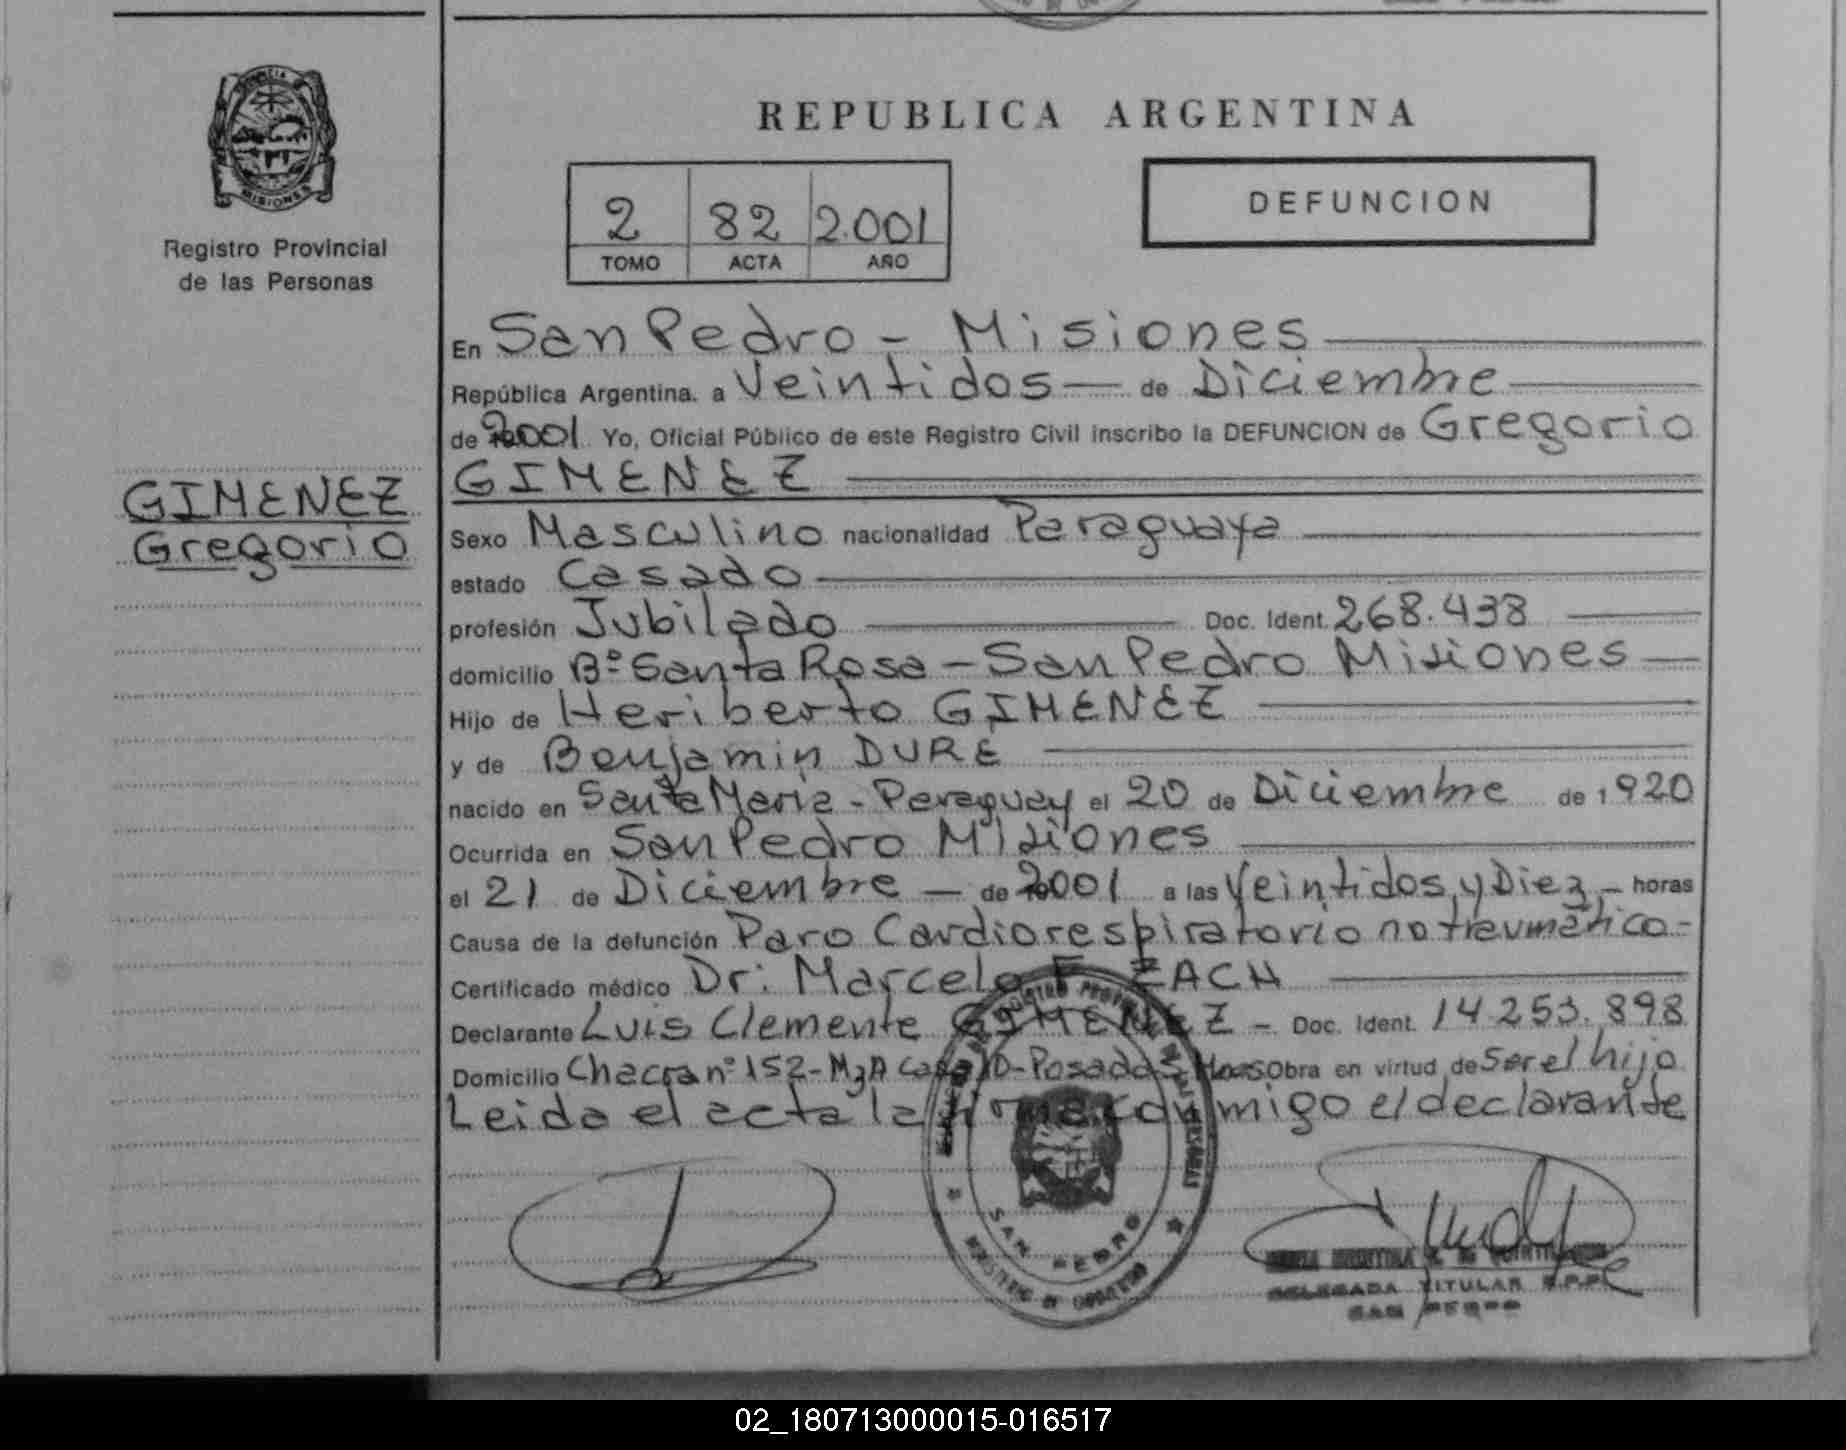 REPUBLICA ARGENTINA
2 82 2.001
TOMO ACTA AÑO
DEFUNCION
PROVINCIA DE
MISIONES
Registro Provincial
de las Personas
GIMENEZ
Gregorio
En San Pedro - Misiones
República Argentina. a Veintidos — de Diciembre
de 2001 Yo, Oficial Público de este Registro Civil inscribo la DEFUNCION de Gregorio
GIMENEZ
Sexo Masculino nacionalidad Paraguaya
estado Casado
profesión Jubilado Doc. Ident. 268.438
domicilio Bº Santa Rosa - San Pedro Misiones
Hijo de Heriberto GIMENEZ
y de Benjamin DURE
nacido en Santa Maria - Paraguay el 20 de Diciembre de 1920
Ocurrida en San Pedro Misiones
el 21 de Diciembre — de 2001 a las Veintidos y Diez - horas
Causa de la defunción Paro Cardiorespiratorio no traumático -
Certificado médico Dr: Marcelo F. ZACH
Declarante Luis Clemente GIMENEZ - Doc. Ident. 14.253.898
Domicilio Chacra nº 152 - MzA casa 10 - Posadas Mnes Obra en virtud de Ser el hijo
Leida el acta la firma conmigo el declarante
SAN PEDRO
DELEGADA TITULAR R.P.P.
SAN PEDRO
02_180713000015-016517